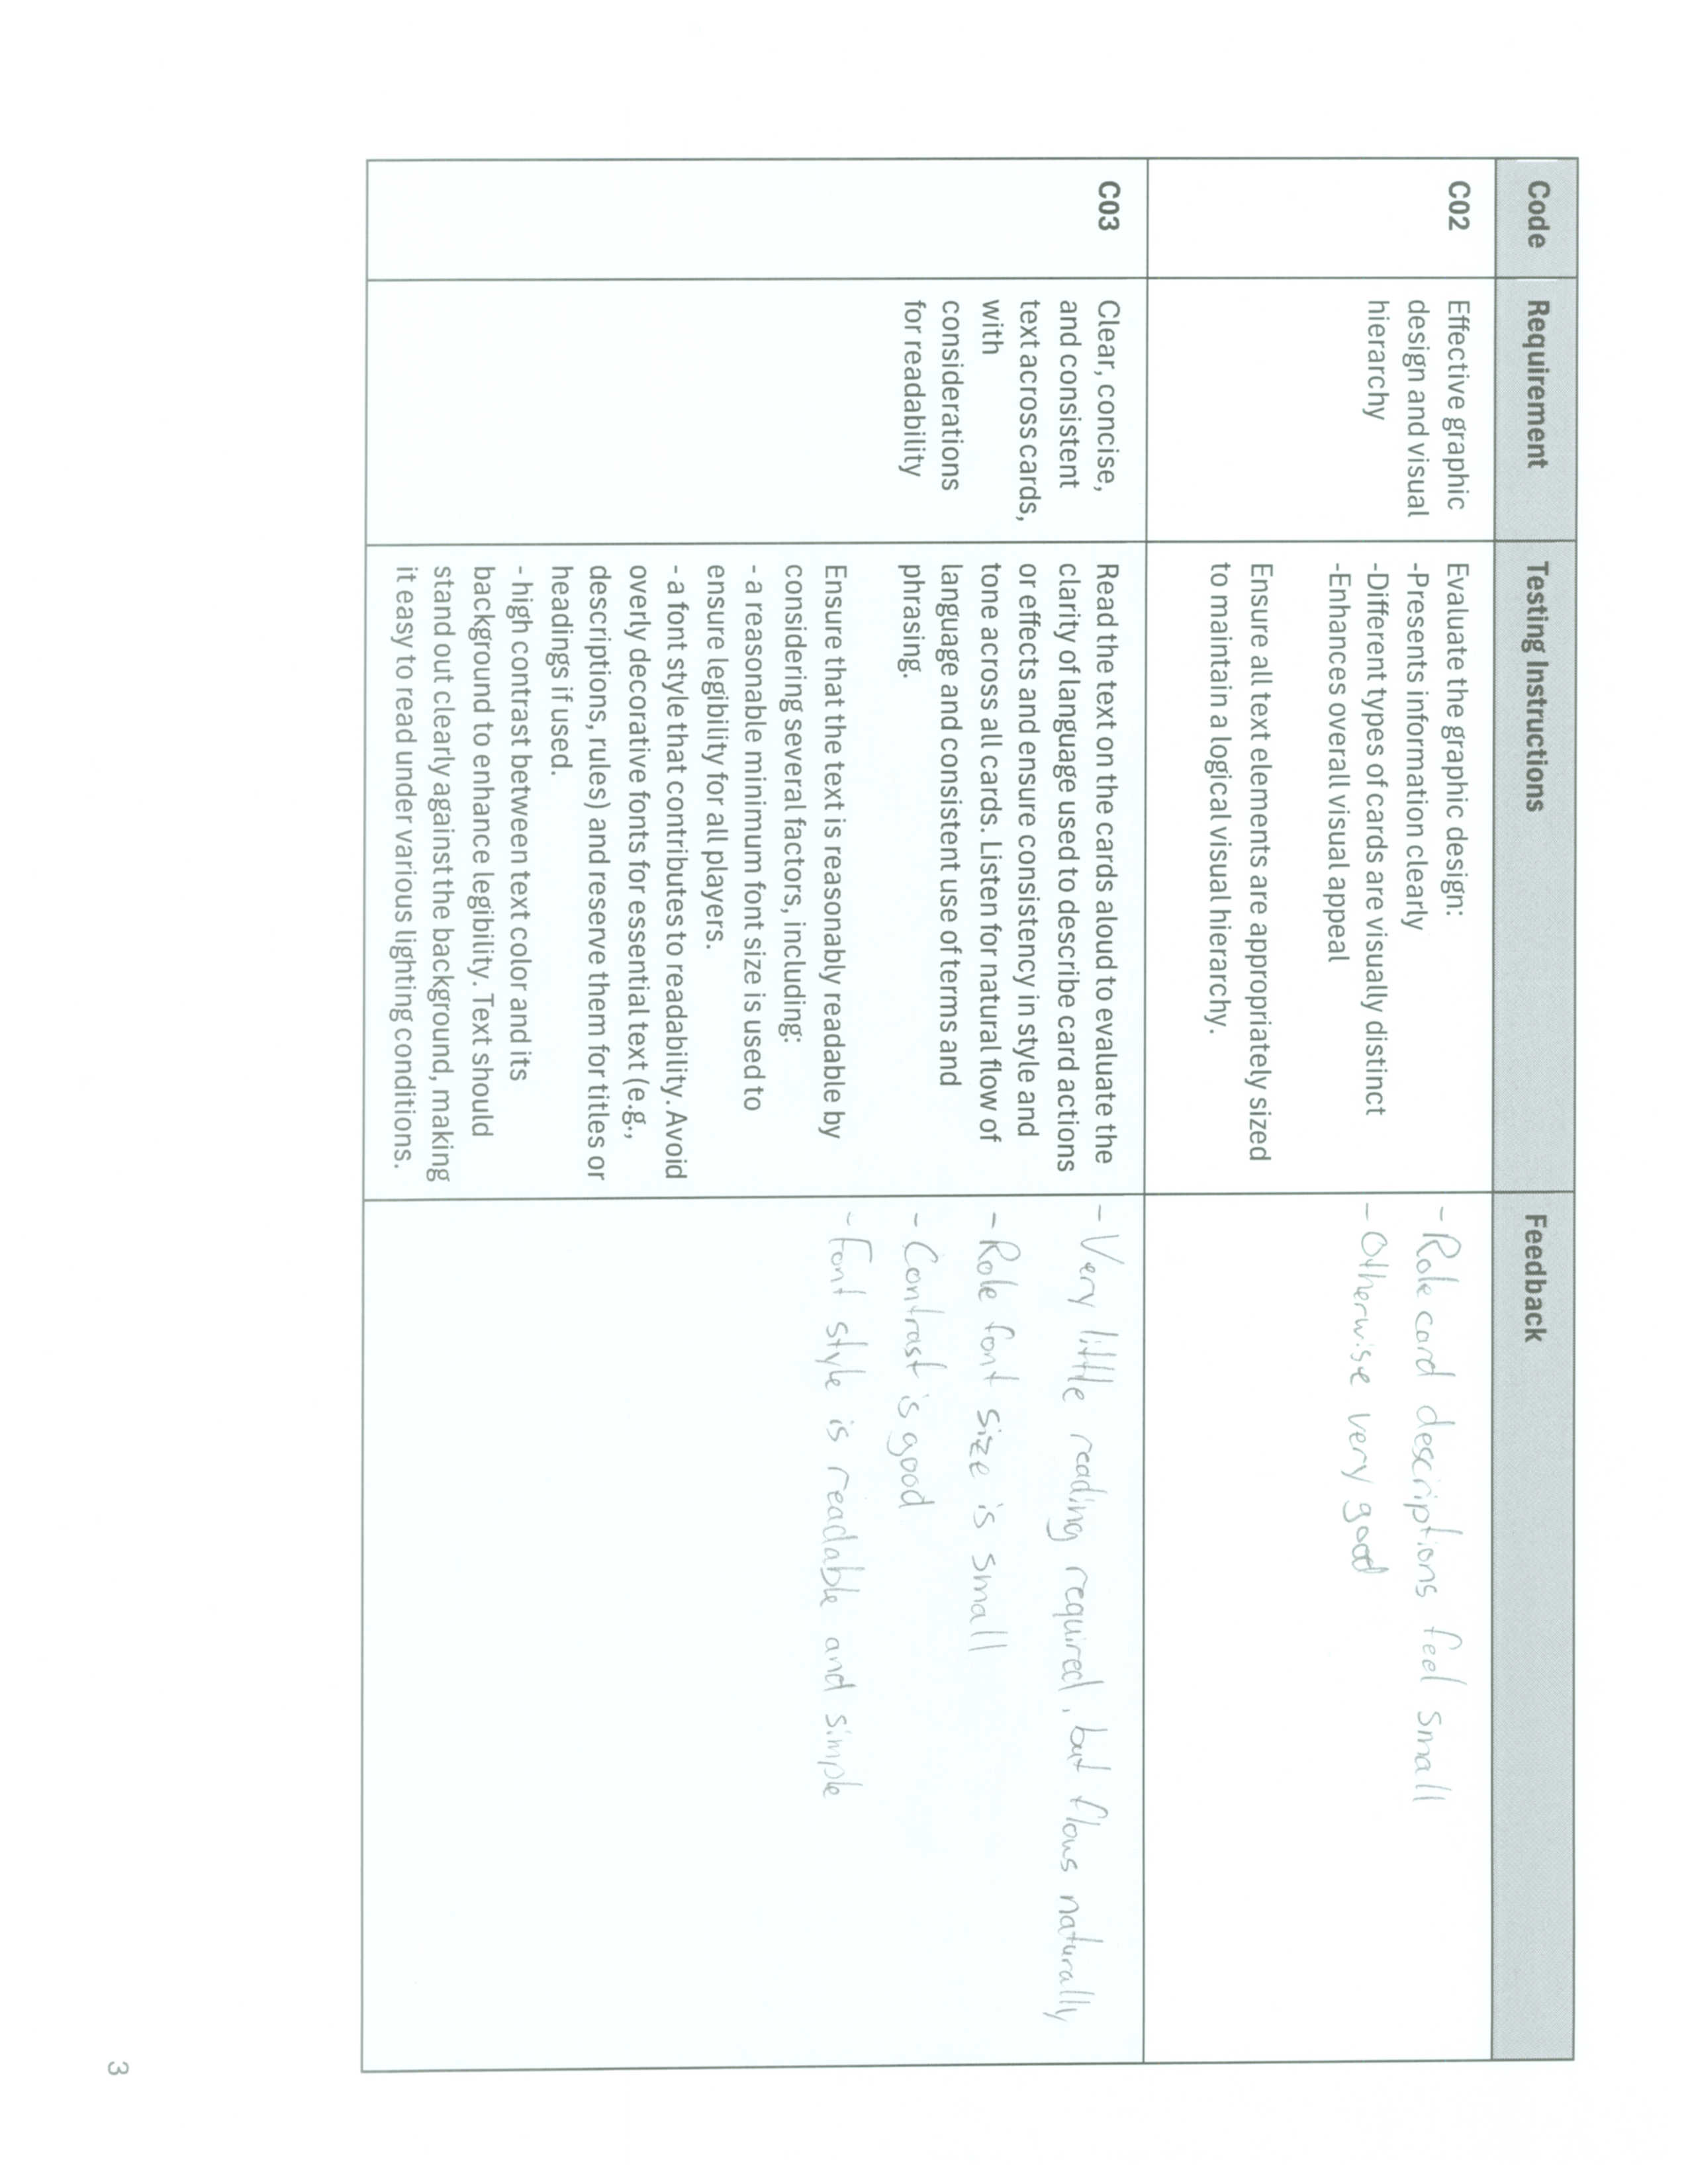 Code
Requirement
Testing Instructions
Feedback
C02
Effective graphic
design and visual
hierarchy
Evaluate the graphic design:
-Presents information clearly
-Different types of cards are visually distinct
-Enhances overall visual appeal
Ensure all text elements are appropriately sized
to maintain a logical visual hierarchy.
- Role card descriptions feel small
- Otherwise very good
C03
Clear, concise,
and consistent
text across cards,
with
considerations
for readability
Read the text on the cards aloud to evaluate the
clarity of language used to describe card actions
or effects and ensure consistency in style and
tone across all cards. Listen for natural flow of
language and consistent use of terms and
phrasing.
Ensure that the text is reasonably readable by
considering several factors, including:
- a reasonable minimum font size is used to
ensure legibility for all players.
- a font style that contributes to readability. Avoid
overly decorative fonts for essential text (e.g.,
descriptions, rules) and reserve them for titles or
headings if used.
- high contrast between text color and its
background to enhance legibility. Text should
stand out clearly against the background, making
it easy to read under various lighting conditions.
- Very little reading required, but flows naturally
- Role font size is small
- Contrast is good
- Font style is readable and simple
3